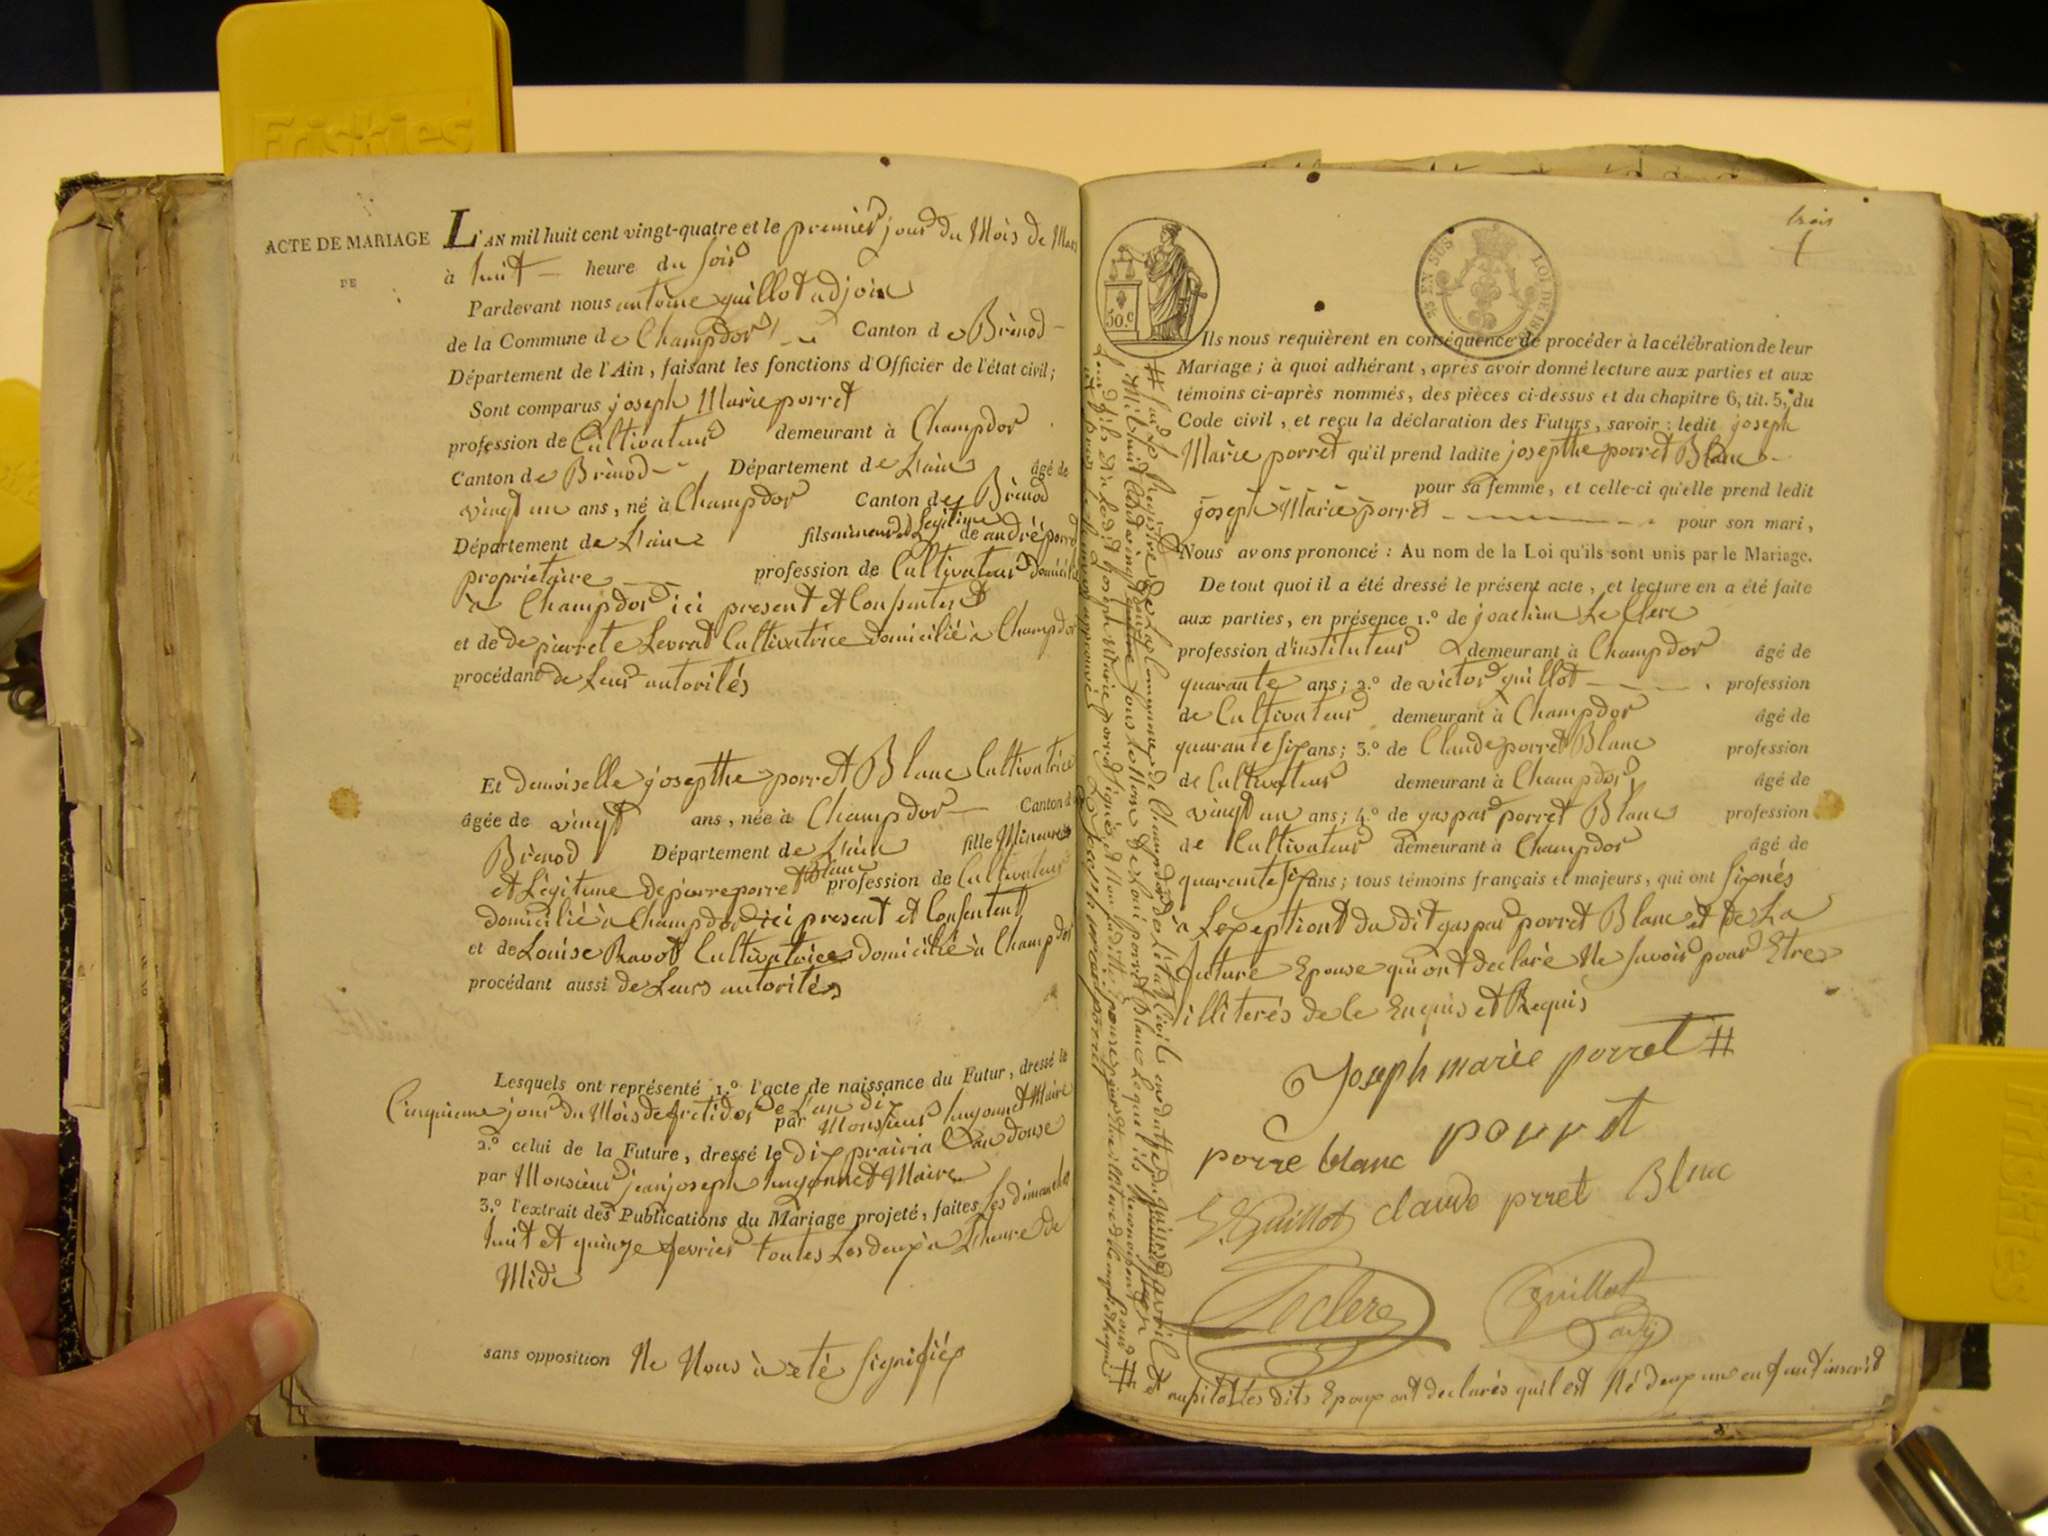 Friskies
ACTE DE MARIAGE
DE
L'AN mil huit cent vingt-quatre et le premier jour du Mois de Mars
à huit heure du soir
Pardevant nous antoine guillot adjoin
de la Commune de Champdor Canton de Brénod
Département de l'Ain, faisant les fonctions d'Officier de l'état civil;
Sont comparus joseph Marie porret
profession de Cultivateur demeurant à Champdor
Canton de Brénod Département de L'ain âgé de
vingt un ans, né à Champdor Canton de Brénod
Département de L'ain fils mineur et Legitime de andré porret
propriétaire profession de Cultivateur domicilié
à Champdor ici present et Consentent
et de de pierrete Levrat Cultivatrice domicilié à Champdor
procédant de Leur autorités
Et demoiselle josepthe porret Blanc Cultivatrice
âgée de vingt ans, née à Champdor Canton de
Brénod Département de L'ain fille Mineure
et Légitime de pierre porret Blanc profession de Cultivateur
domicilié à Champdor ici present et Consentent
et de Louise Ravot Cultivatrice domicilié à Champdor
procédant aussi de Leurs autorités
Lesquels ont représenté 1.º l'acte de naissance du Futur, dressé le
Cinquieme jour du Mois de fretidor de L'an dix par Monsieur huyonnet Maire
2.º celui de la Future, dressé le dix prairia L'an douse
par Monsieur jean joseph huyonnet Maire
3.º l'extrait des Publications du Mariage projeté, faites Les dimanches
huit et quinze fevrier toutes Les deux à L'heure de
Midi
sans opposition Ne Nous à été signifiés
trois
50.c
EN SUS LOI DE
Ils nous requièrent en conséquence de procéder à la célébration de leur
Mariage; à quoi adhérant, après avoir donné lecture aux parties et aux
témoins ci-après nommés, des pièces ci-dessus et du chapitre 6, tit. 5, du
Code civil, et reçu la déclaration des Futurs, savoir: ledit joseph
Marie porret qu'il prend ladite josepthe porret Blanc
pour sa femme, et celle-ci qu'elle prend ledit
joseph Marie porret pour son mari,
Nous avons prononcé: Au nom de la Loi qu'ils sont unis par le Mariage.
De tout quoi il a été dressé le présent acte, et lecture en a été faite
aux parties, en présence 1.º de joachim Le Clerc
profession d'instituteur demeurant à Champdor âgé de
quarante ans; 2.º de victor guillot profession
de Cultivateur demeurant à Champdor âgé de
quarante six ans; 3.º de Claude porret Blanc profession
de Cultivateur demeurant à Champdor âgé de
vingt un ans; 4.º de gaspar porret Blanc profession
de Cultivateur demeurant à Champdor âgé de
quarante six ans; tous témoins français et majeurs, qui ont signés
à Lexeptiont du dit gaspar porret Blanc et de La
future Epouse qui ont declaré Ne savoir pour Etre
illiterés de le Enquis et Requis
Joseph marie porret #
porre blanc porret
V. Guillot claude prret Blnc
Leclerc Guillot adj
aussitot Les dits Epoux ont declarés quil est Né deux un enfant inscrit
# sur Le Registre de La Commune de Champdor de L'état Civil en datte du quinse avril
Mil huit Cent vingt sous Le Nom de Loui porret Blanc Lequel ils reconoissent pour #
Leur fils et Ledit joseph Marie porret signé et Non Ladite Epouse pour Etre illiteré de le enquis et Requis
joseph marie porret